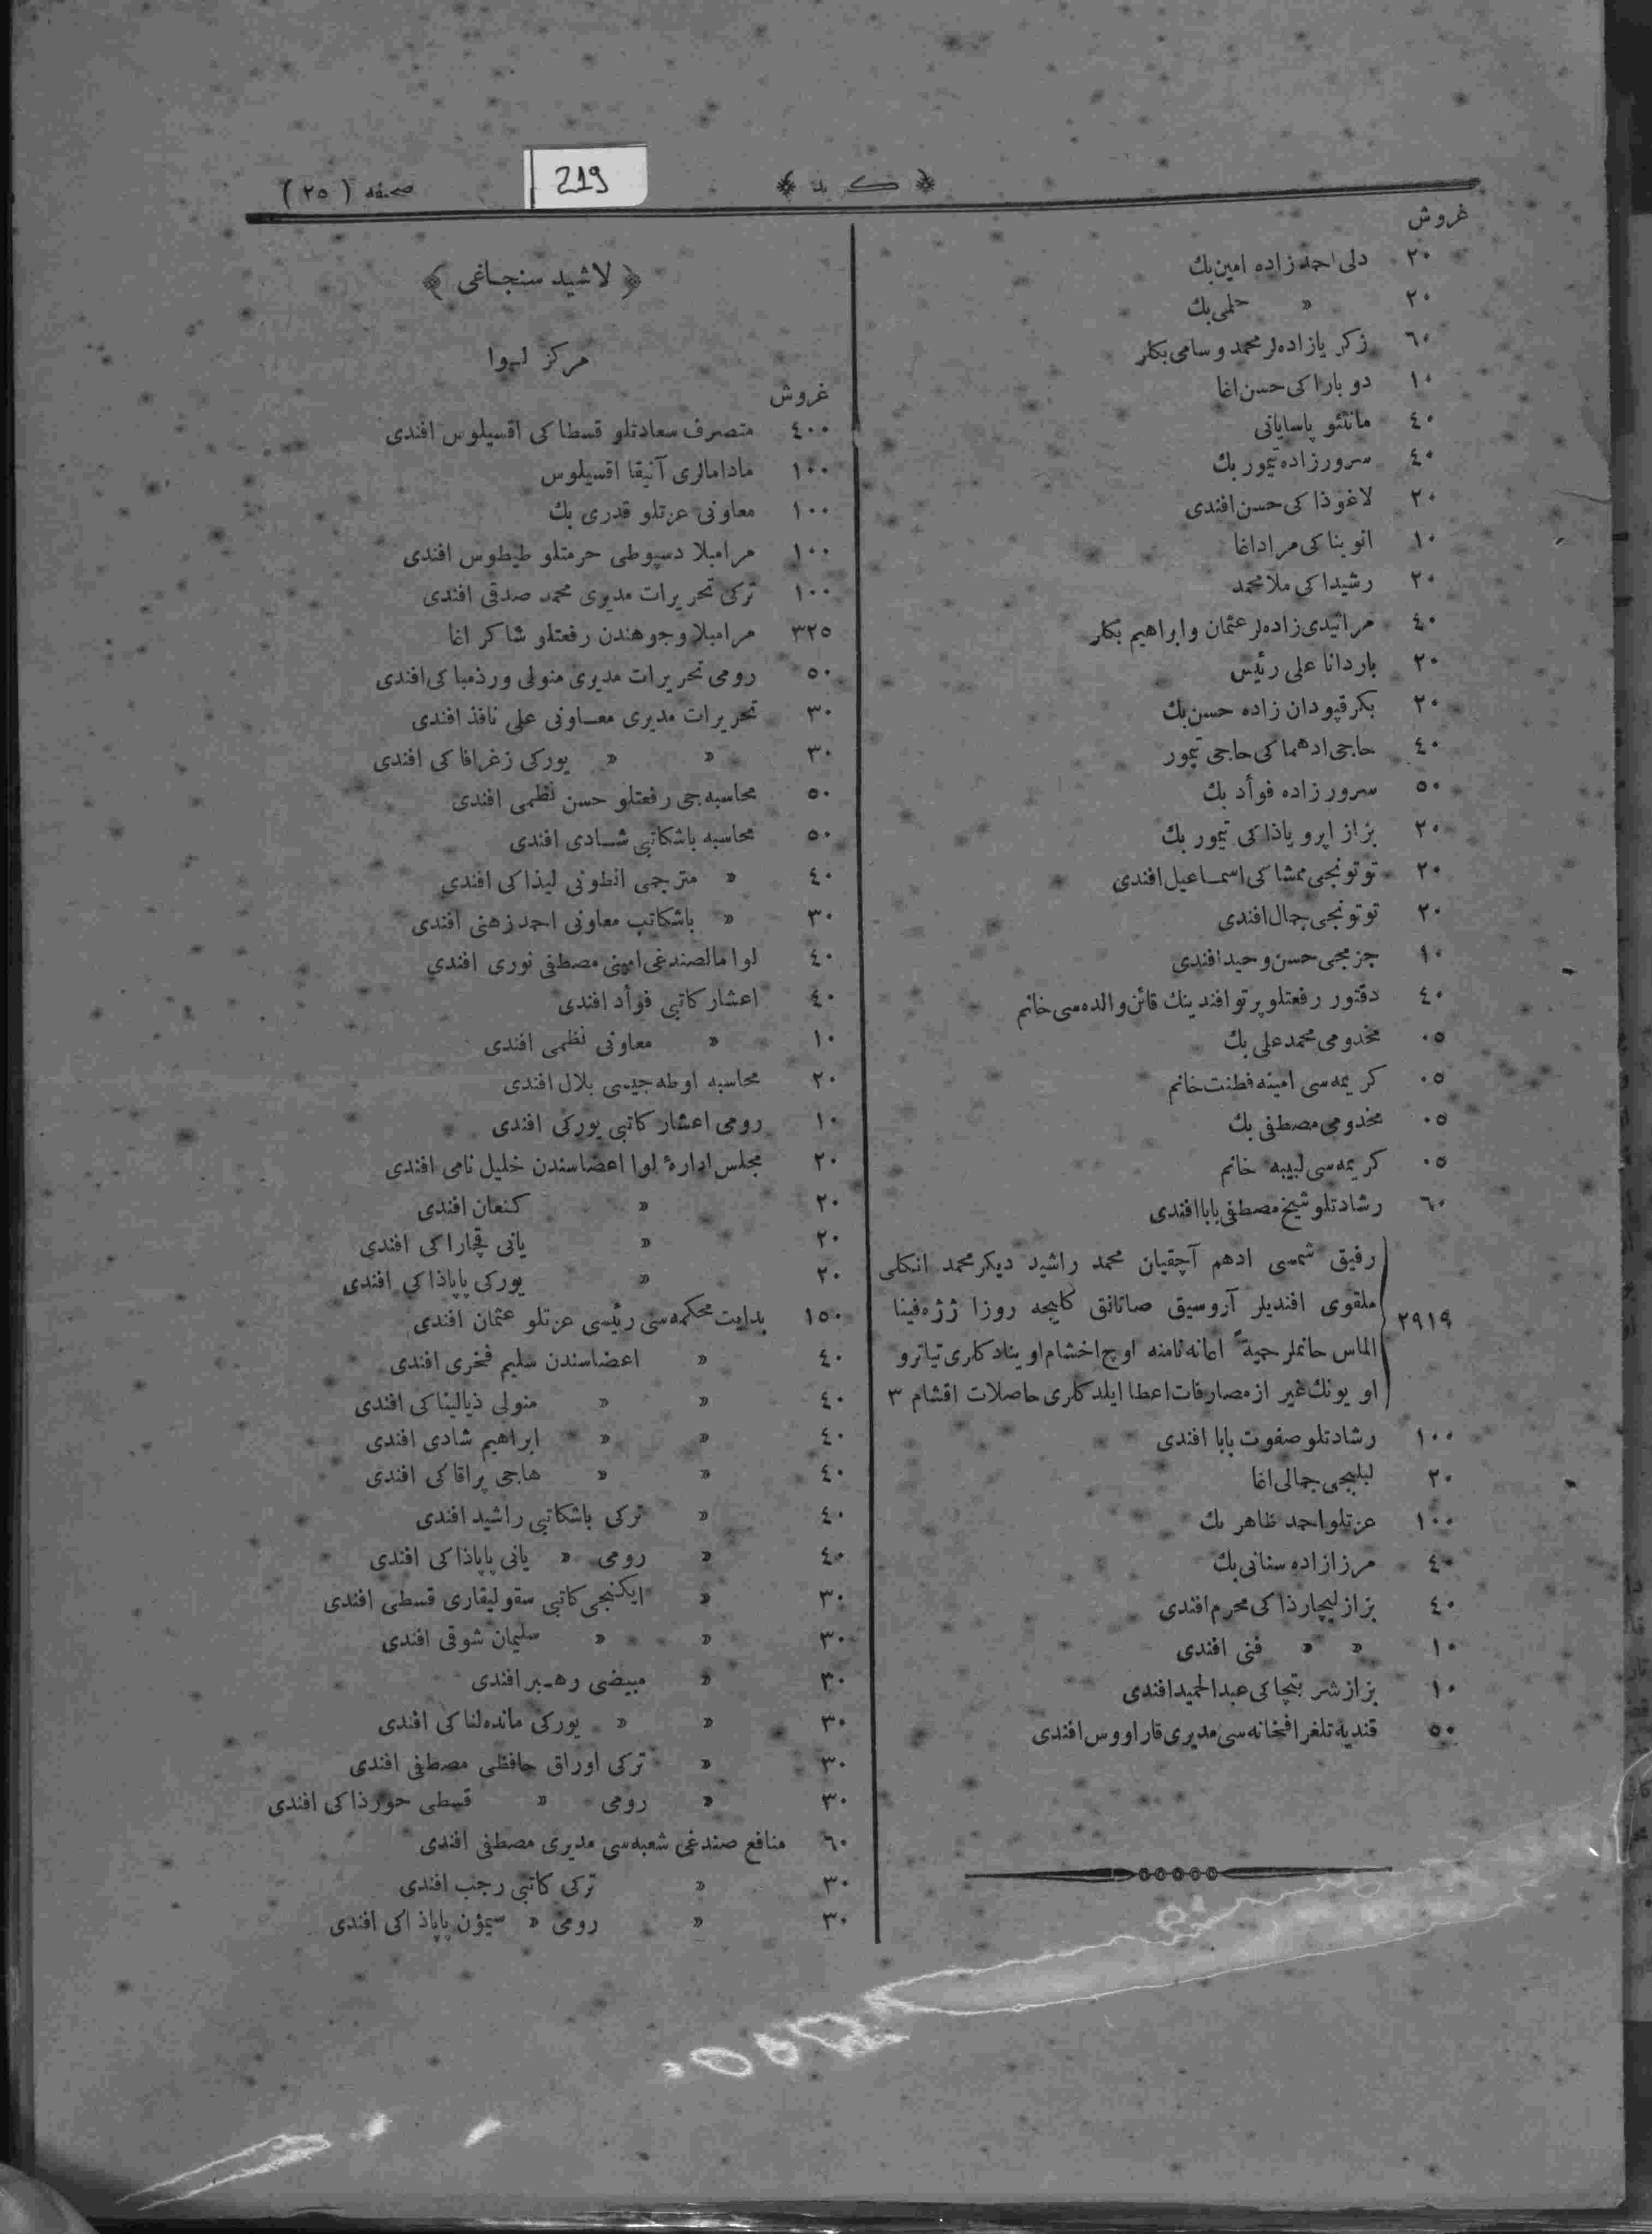 ﴿ كريد ﴾
219
صحيفه ( ٢٥ )
غروش
٢٠ دلی احمد زاده امین‌بك
٢٠ » حلمی‌بك
٦٠ زکریازاده‌لر محمد و سامی‌بکلر
١٠ دوباراکی حسن‌اغا
٤٠ مانثئو پاسایانی
٤٠ سرورزاده تیمور بك
٢٠ لاغوذاکی حسن‌افندی
١٠ انویناکی مراداغا
٢٠ رشیداکی ملامحمد
٤٠ مراثیدی‌زاده‌لر عثمان وابراهیم بکلر
٢٠ باردانا علی رئیس
٢٠ بکرقپودان زاده حسن‌بك
٤٠ حاجی‌ادهماکی حاجی تیمور
٥٠ سرورزاده فوأد بك
٢٠ بزاز اپرویاذاکی تیمور بك
٢٠ توتونجی ممشاکی‌اسمـاعیل‌افندی
٢٠ توتونجی‌جمال‌افندی
١٠ جزمجی‌حسن‌وحیدافندی
٤٠ دقتور رفعتلو پرتو افندینك قائن‌والده‌سی‌خانم
٠٥ مخدومی‌محمدعلی‌بك
٠٥ کریمه‌سی امینه‌فطنت‌خانم
٠٥ مخدومی‌مصطفی‌بك
٠٥ کریمه‌سی‌لبیبه خانم
٦٠ رشادتلو شیخ‌مصطفی‌باباافندی
رفیق شمسی ادهم آچقیان محمد راشید دیکرمحمد انکلی
ملقوی افندیلر آروسیق صاتانق کلیچه روزا ژژه‌فینا
٢٩١٩ الماس خانملرحمیةً اعانه‌نامنه اوچ‌اخشام‌اوینادکلری‌تیاترو
اویونك‌غیر ازمصارفات‌اعطا ایلدکلری‌حاصلات اقشام ٣
١٠٠ رشادتلوصفوت بابا افندی
٢٠ لبلبیجی‌جمالی‌اغا
١٠٠ عزتلواحمد طاهر بك
٤٠ مرزازاده سنانی‌بك
٤٠ بزاز لیچارذاکی‌محرم‌افندی
١٠ » » فنی افندی
١٠ بزاز شربتچاکی‌عبدالحمیدافندی
٥٠ قندیه‌تلغرافخانه‌سی‌مدیری‌قاراووس‌افندی
﴿ لاشید سنجـاغی ﴾
مرکز لـوا
غروش
٤٠٠ متصرف سعادتلو قسطاکی اقسیلوس افندی
١٠٠ مادامالری آنیقا اقسیلوس
١٠٠ معاونی عزتلو قدری بك
١٠٠ مرامبلا دسپوطی حرمتلو طیطوس افندی
١٠٠ ترکی تحریرات مدیری محمد صدقی افندی
٣٢٥ مرامبلا وجوهندن رفعتلو شاکر اغا
٥٠ رومی تحریرات مدیری منولی ورذمباکی‌افندی
٣٠ تحریرات مدیری معـاونی علی نافذ افندی
٣٠ » » یورکی زغرافاکی افندی
٥٠ محاسبه‌جی رفعتلو حسن نظمی افندی
٥٠ محاسبه باشکاتبی شـادی افندی
٤٠ » مترجمی انطونی لیذاکی افندی
٣٠ » باشکاتب معاونی احمدزهنی افندی
٤٠ لوا مال‌صندغی‌امینی مصطفی نوری افندی
٤٠ اعشار کاتبی فوأد افندی
١٠ » معاونی نظمی افندی
٢٠ محاسبه اوطه‌جیسی بلال افندی
١٠ رومی اعشار کاتبی یورکی افندی
٢٠ مجلس ادارۀ لوا اعضاسندن خلیل نامی افندی
٢٠ » کنعان افندی
٢٠ » یانی قچاراکی افندی
٢٠ » یورکی پاپاذاکی افندی
١٥٠ بدایت محکمه‌سی رئیسی عزتلو عثمان افندی
٤٠ » اعضاسندن سلیم فخری افندی
٤٠ » » منولی ذیالیناکی افندی
٤٠ » » ابراهیم شادی افندی
٤٠ » » هاجی پراقاکی افندی
٤٠ » ترکی باشکاتبی راشید افندی
٤٠ » رومی » یانی پاپاذاکی افندی
٣٠ » ایکنجی‌کاتبی سقولیقاری قسطی افندی
٣٠ » » سلیمان شوقی افندی
٣٠ » مبیضی رهـبر افندی
٣٠ » » یورکی مانده‌لناکی افندی
٣٠ » ترکی اوراق حافظی مصطفی افندی
٣٠ » رومی » قسطی حورذاکی افندی
٦٠ منافع صندغی شعبه‌سی مدیری مصطفی افندی
٣٠ » ترکی کاتبی رجب افندی
٣٠ » رومی » سیمؤن پاپاذاکی افندی